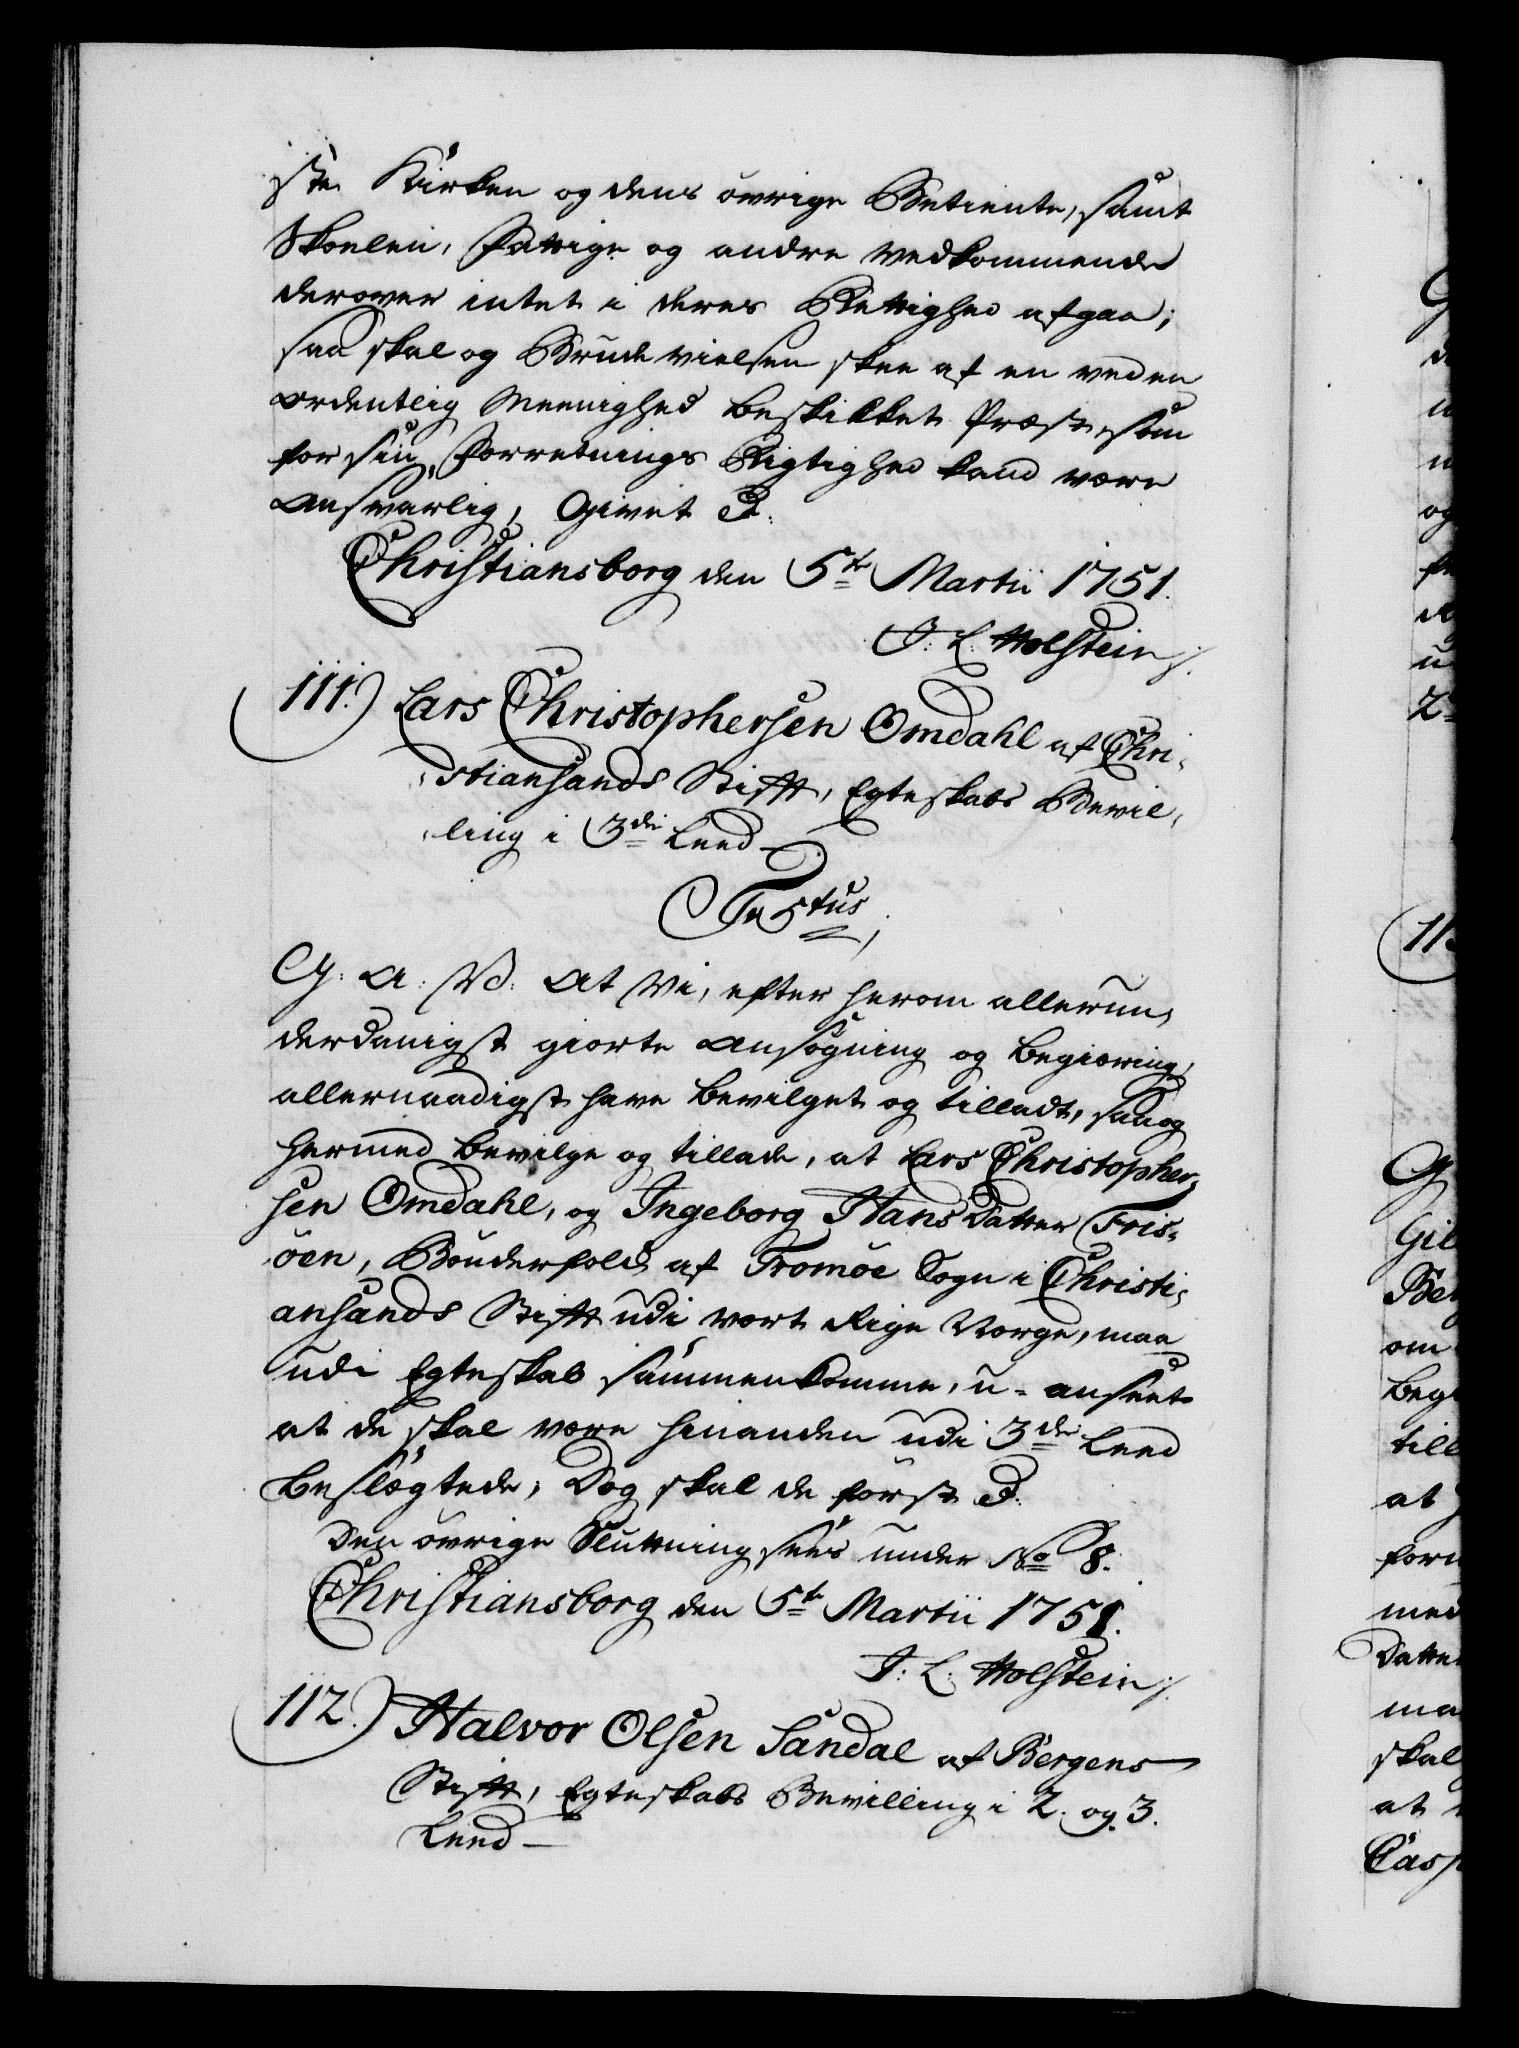 ste Kirken og dens övrige Betiente, samt
Skoelen, Fattige og andre vedkommende
derover intet i deres Rettighed afgaa;
saa skal og Brude vielsen skee af en ved en
ordentlig Meenighed beskikket Præst, som
for sin Forretnings Rigtighed kand være
ansvarlig, Givet &.
Christiansborg den 5te Martii 1751.
J: L: Holstein /.
111.) Lars Christophersen Omdahl af Chri-
stiansands Stift, Egteskabs Bevil-
ling i 3die Leed —
Textus
G: A: V: At Vi, efter herom allerun-
derdanigst giorte Ansøgning og Begiæring,
allernaadigst have bevilget og tilladt, saa og
hermed bevilge og tillade, at Lars Christopher-
sen Omdahl, og Ingeborg Hans Datter Fris-
öen, Bönderfolk af Tromöe Sogn i Christi-
ansands Stift udi vort Rige Norge, maa
udi Egteskab sammenkomme, u-anseet
at de skal være hinanden udi 3die Leed
beslægtede; Dog skal de först &.
Den övrige Slutning sees under No 8.
Christiansborg den 5te Martii 1751.
J: L: Holstein /.
112.) Halvor Olsen Sandal af Bergens
Stift, Egteskabs Bevilling i 2. og 3.
Leed —